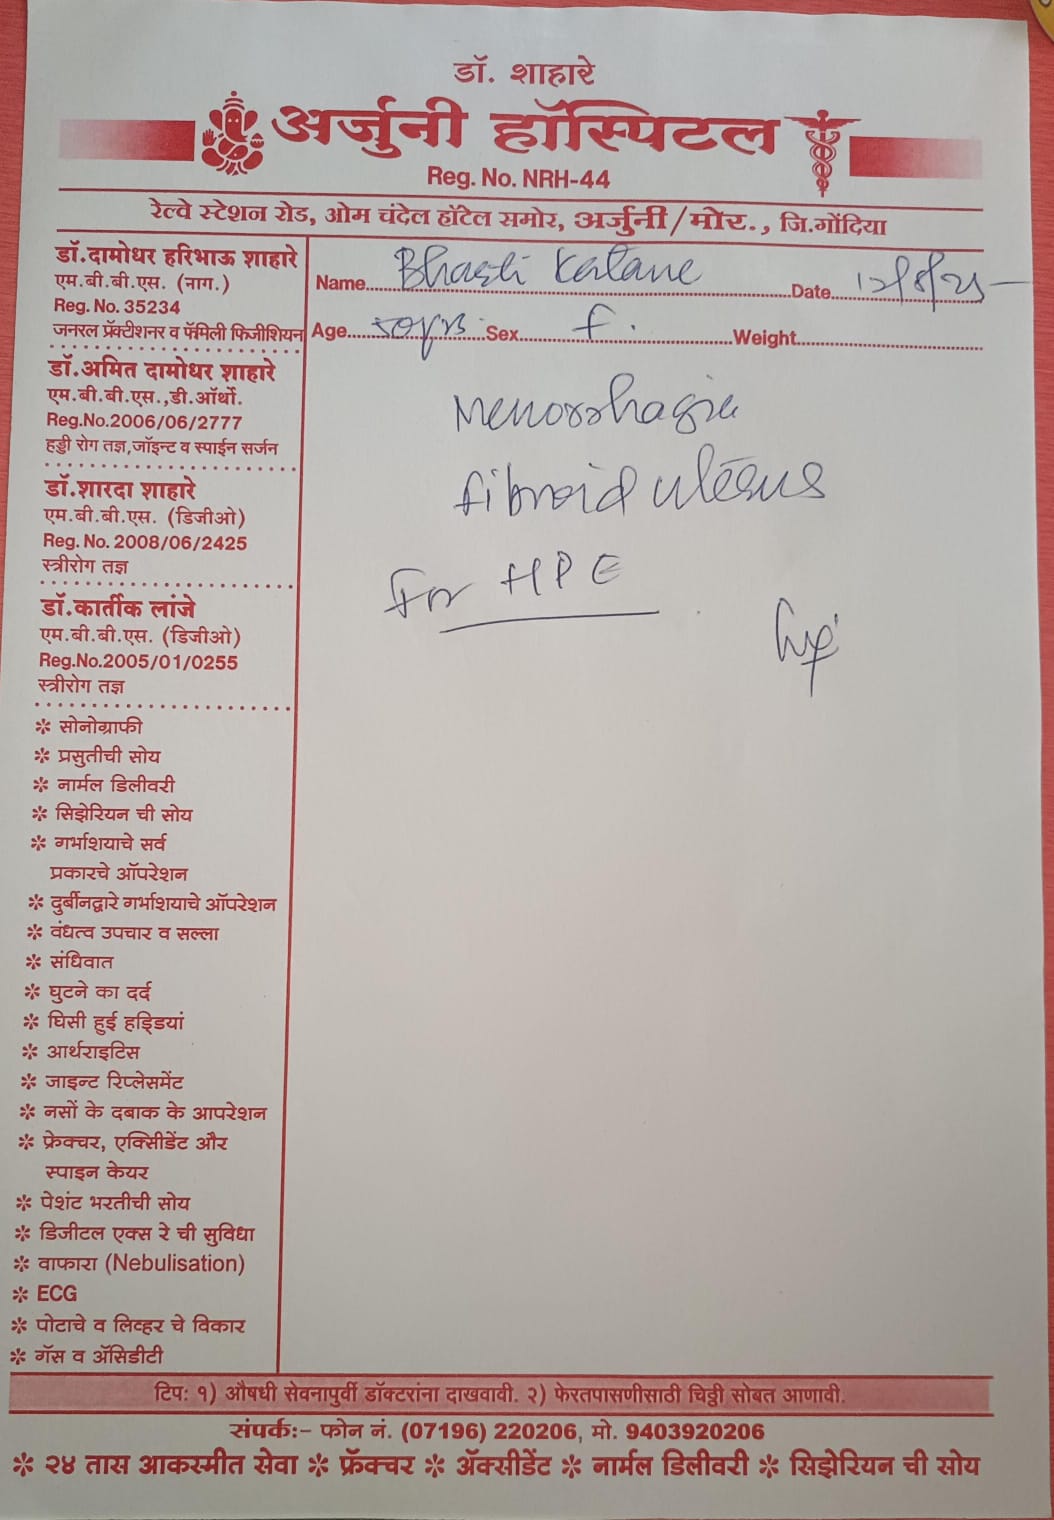 डॉ. शाहारे
अर्जुनी हॉस्पिटल
Reg. No. NRH-44
रेल्वे स्टेशन रोड, ओम चंदेल हॉटेल समोर, अर्जुनी/मोर., जि.गोंदिया
डॉ.दामोधर हरिभाऊ शाहारे
एम.बी.बी.एस. (नाग.)
Reg. No. 35234
जनरल प्रॅक्टीशनर व फॅमिली फिजीशियन
डॉ.अमित दामोधर शाहारे
एम.बी.बी.एस.,डी.ऑर्थो.
Reg.No.2006/06/2777
हड्डी रोग तज्ञ,जॉइन्ट व स्पाईन सर्जन
डॉ.शारदा शाहारे
एम.बी.बी.एस. (डिजीओ)
Reg. No. 2008/06/2425
स्त्रीरोग तज्ञ
डॉ.कार्तीक लांजे
एम.बी.बी.एस. (डिजीओ)
Reg.No.2005/01/0255
स्त्रीरोग तज्ञ
❇ सोनोग्राफी
❇ प्रसुतीची सोय
❇ नार्मल डिलीवरी
❇ सिझेरियन ची सोय
❇ गर्भाशयाचे सर्व
प्रकारचे ऑपरेशन
❇ दुर्बीनद्वारे गर्भाशयाचे ऑपरेशन
❇ वंधत्व उपचार व सल्ला
❇ संधिवात
❇ घुटने का दर्द
❇ घिसी हुई हड्डियां
❇ आर्थराइटिस
❇ जाइन्ट रिप्लेसमेंट
❇ नसों के दबाक के आपरेशन
❇ फ्रेक्चर, एक्सिीडेंट और
स्पाइन केयर
❇ पेशंट भरतीची सोय
❇ डिजीटल एक्स रे ची सुविधा
❇ वाफारा (Nebulisation)
❇ ECG
❇ पोटाचे व लिव्हर चे विकार
❇ गॅस व ॲसिडीटी
Name Date 12/8/25
Age 50yrs Sex F. Weight
Menorrhagia
fibroid uterus
For HPE
टिप: १) औषधी सेवनापुर्वी डॉक्टरांना दाखवावी. २) फेरतपासणीसाठी चिठ्ठी सोबत आणावी.
संपर्क:- फोन नं. (07196) 220206, मो. 9403920206
❇ २४ तास आकस्मीत सेवा ❇ फ्रॅक्चर ❇ ॲक्सीडेंट ❇ नार्मल डिलीवरी ❇ सिझेरियन ची सोय